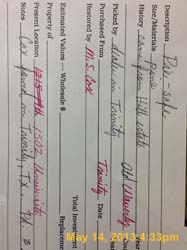 Description Pie-safe
Size/Materials Pine
History came from Hill estate
Old Waverly
Picked by dealer in Trinity
Purchased From Trinity Date
Restored by M.S. Cox
Total Investment
Estimated Values --- Wholesale $ Replacement
Property of
Present Location 1502 University
Notes Cox found in Trinity, TX,
May 14, 2013 4:33pm